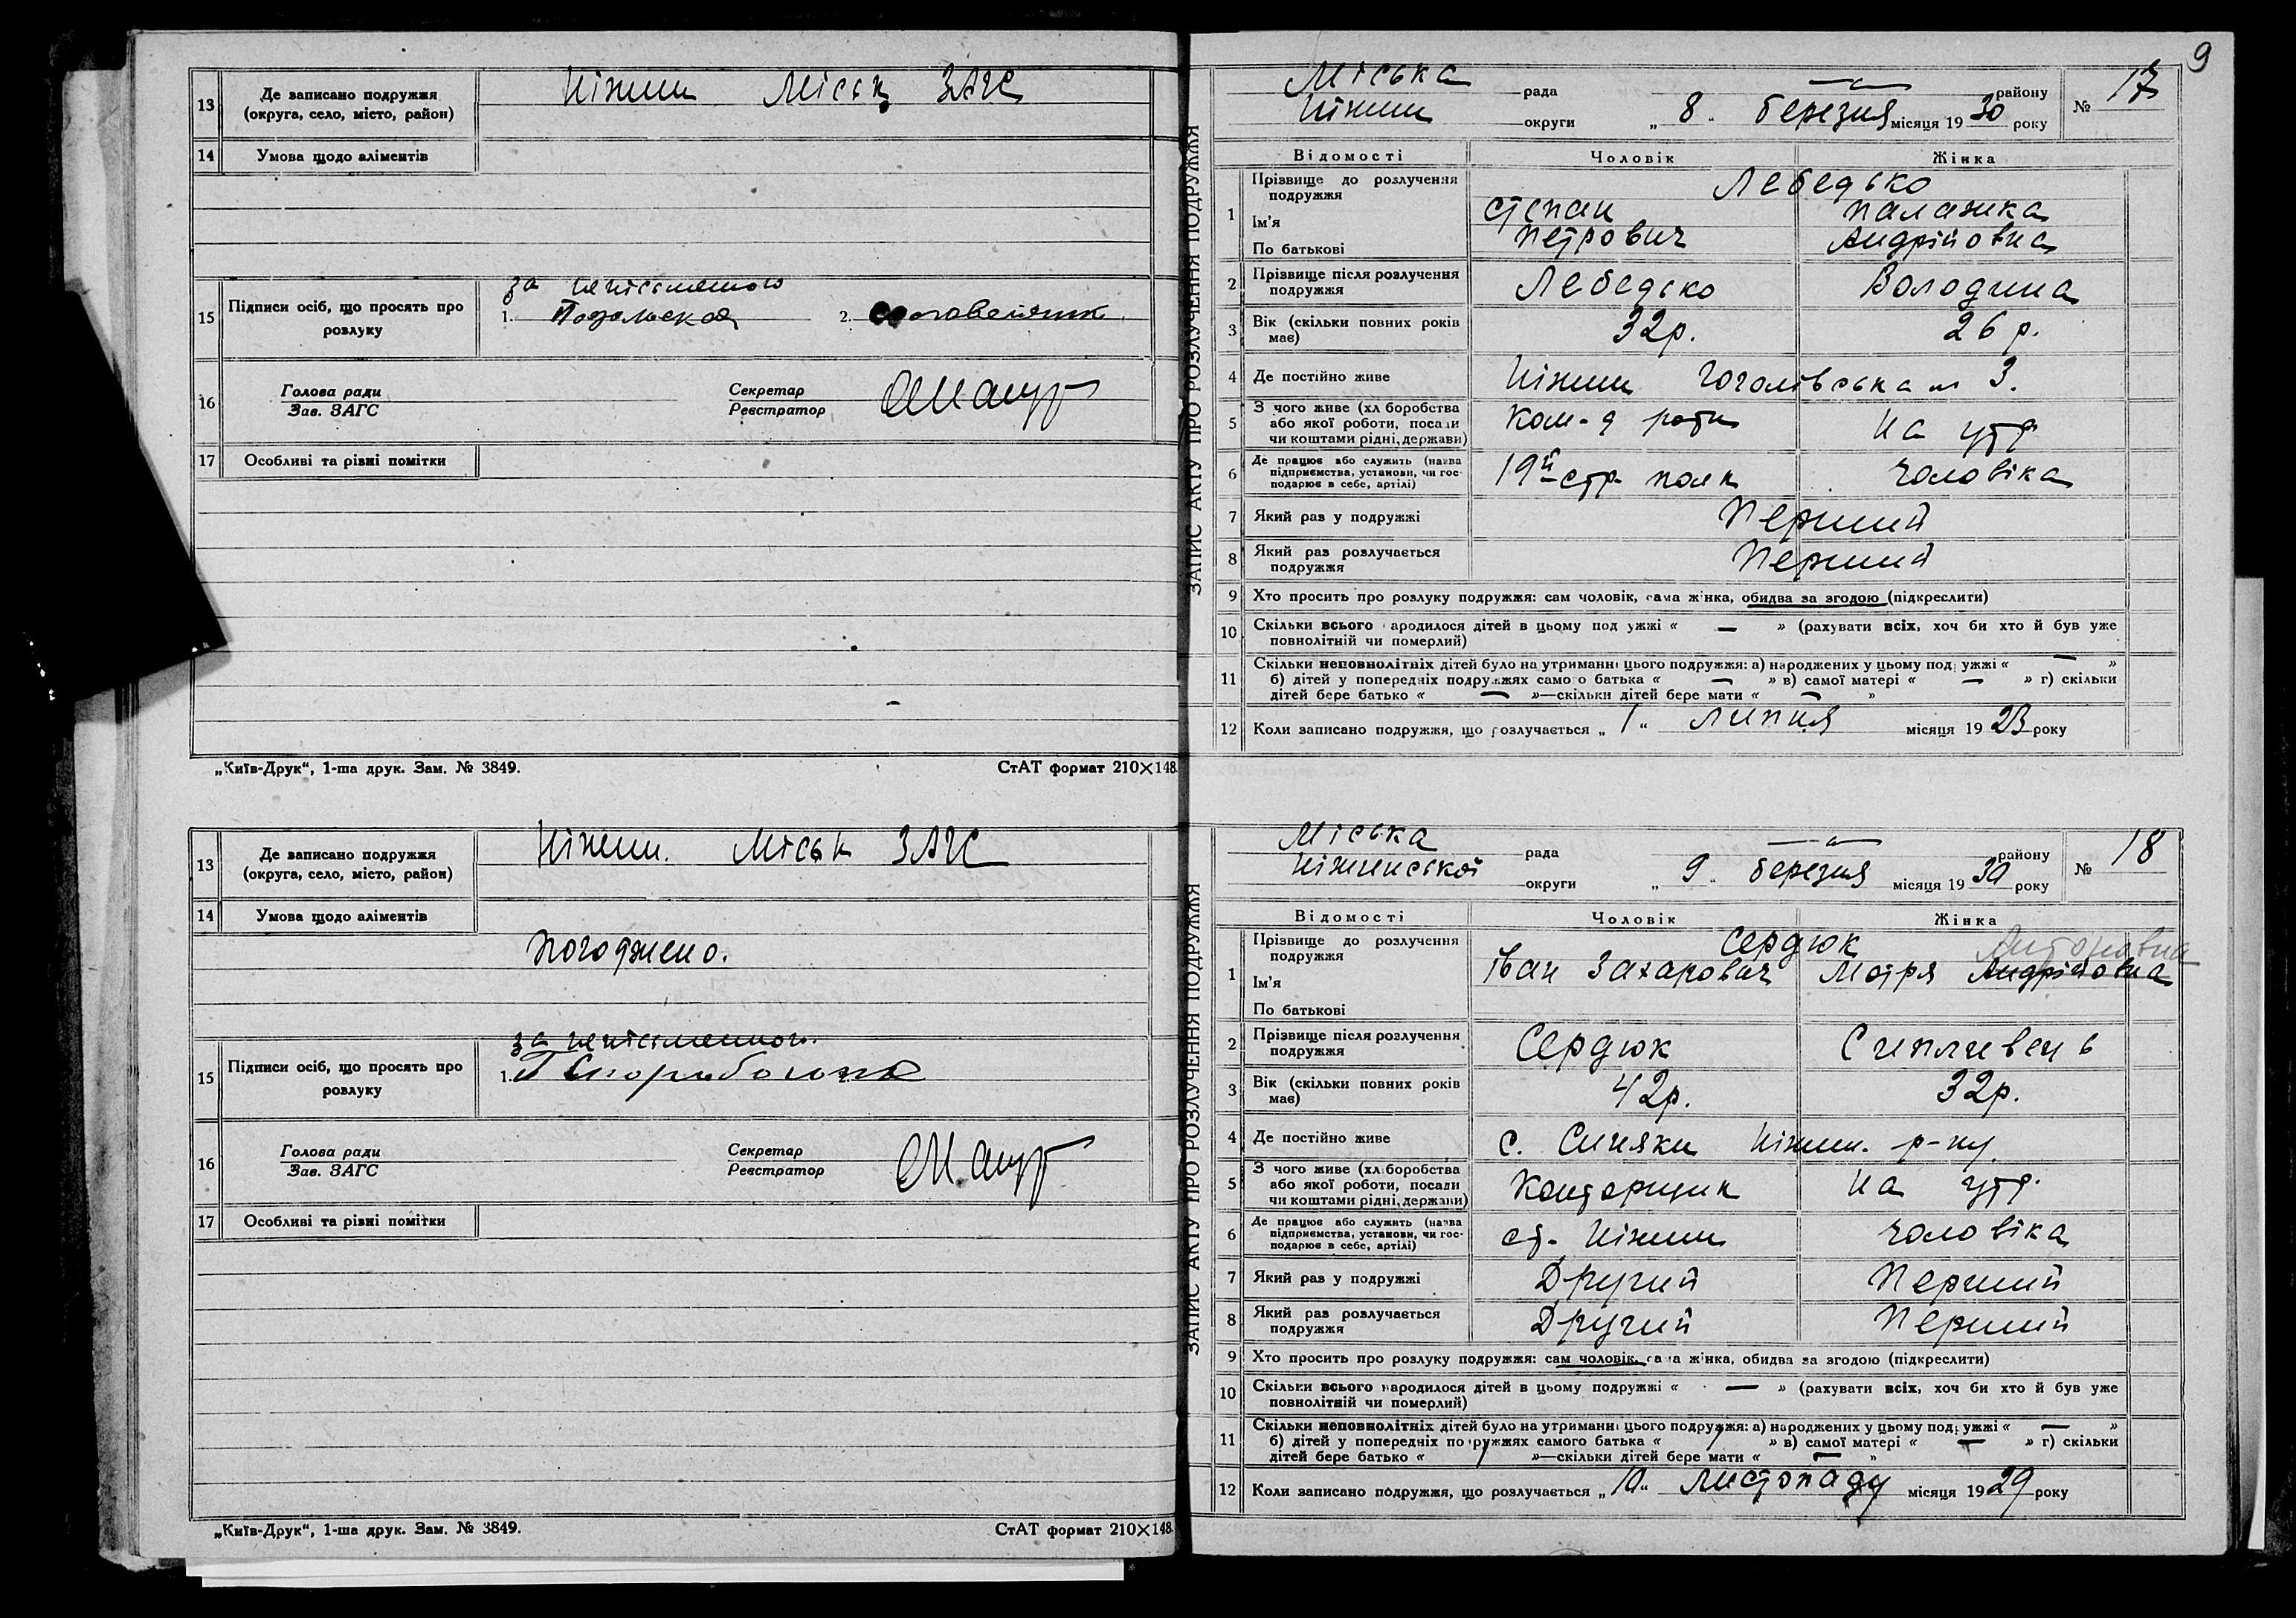 13 Де записано подружжя (округа, село, місто, район) Ніжин Міськ ЗАГС
14 Умова щодо аліментів
15 Підписи осіб, що просять про розлуку
за неписьменного
1. Подольская 2.
16 Голова ради Зав. ЗАГС Секретар Реєстратор
17 Особливі та різні помітки
„Київ-Друк“, 1-ша друк. Зам. № 3849. СтАТ формат 210×148
13 Де записано подружжя (округа, село, місто, район) Ніжин. Міськ ЗАГС
14 Умова щодо аліментів
Погоджено.
15 Підписи осіб, що просять про розлуку
за неписьменного
1.
16 Голова ради Зав. ЗАГС Секретар Реєстратор
17 Особливі та різні помітки
„Київ-Друк“, 1-ша друк. Зам. № 3849. СтАТ формат 210×148
9
ЗАПИС АКТУ ПРО РОЗЛУЧЕННЯ ПОДРУЖЖЯ
Міська рада — району
Ніжин округи „ 8 “ березня місяця 1930 року № 17
Відомості Чоловік Жінка
1 Прізвище до розлучення подружжя Лебедько
Ім'я Степан Палажка
По батькові Петрович Андріївна
2 Прізвище після розлучення подружжя Лебедько Володина
3 Вік (скільки повних років має) 32р. 26р.
4 Де постійно живе Ніжин Гоголівська № 3.
5 З чого живе (хліборобства або якої роботи, посади чи коштами рідні, держави) Ком-д роти На утр
6 Де працює або служить (назва підприємства, установи, чи господарює в себе, артілі) 19й стр. полк чоловіка
7 Який раз у подружжі Перший
8 Який раз розлучається подружжя Перший
9 Хто просить про розлуку подружжя: сам чоловік, сама жінка, обидва за згодою (підкреслити)
10 Скільки всього народилося дітей в цьому подружжі « — » (рахувати всіх, хоч би хто й був уже повнолітній чи померлий)
11 Скільки неповнолітніх дітей було на утриманні цього подружжя: а) народжених у цьому подружжі « — »
б) дітей у попередніх подружжях самого батька « — » в) самої матері « — » г) скільки
дітей бере батько « — »—скільки дітей бере мати « — »
12 Коли записано подружжя, що розлучається „ 1 “ липня місяця 1923 року
ЗАПИС АКТУ ПРО РОЗЛУЧЕННЯ ПОДРУЖЖЯ
Міська рада — району
Ніжинської округи „ 9 “ березня місяця 1930 року № 18
Відомості Чоловік Жінка
1 Прізвище до розлучення подружжя Сердюк Антонівна
Ім'я Іван Захарович Мотря Андріївна
По батькові
2 Прізвище після розлучення подружжя Сердюк Сипливець
3 Вік (скільки повних років має) 42р. 32р.
4 Де постійно живе с. Синяки Ніжин. р-ну
5 З чого живе (хліборобства або якої роботи, посади чи коштами рідні, держави) Конторщик На утр.
6 Де працює або служить (назва підприємства, установи, чи господарює в себе, артілі) ст. Ніжин чоловіка
7 Який раз у подружжі Другий Перший
8 Який раз розлучається подружжя Другий Перший
9 Хто просить про розлуку подружжя: сам чоловік, сама жінка, обидва за згодою (підкреслити)
10 Скільки всього народилося дітей в цьому подружжі « — » (рахувати всіх, хоч би хто й був уже повнолітній чи померлий)
11 Скільки неповнолітніх дітей було на утриманні цього подружжя: а) народжених у цьому подружжі « — »
б) дітей у попередніх подружжях самого батька « 1 » в) самої матері « — » г) скільки
дітей бере батько « 1 »—скільки дітей бере мати « — »
12 Коли записано подружжя, що розлучається „ 10 “ листопаду місяця 1929 року